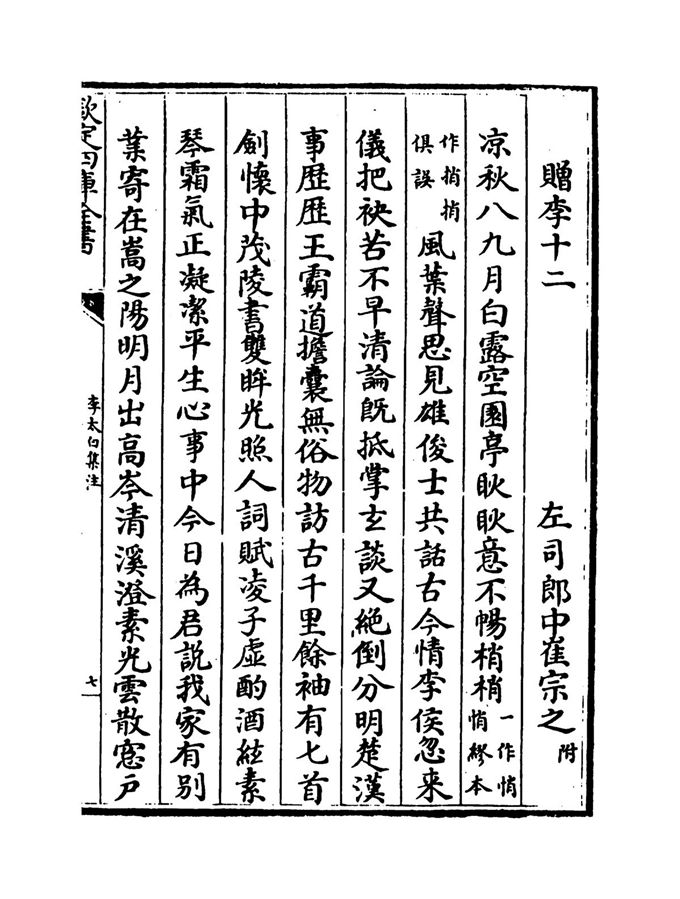 贈李十二 左司郎中崔宗之附
凉秋八九月白露空園亭耿耿意不暢梢梢一作悄悄繆本
作捎捎俱誤風葉聲思見雄俊士共話古今情李侯忽来
儀把袂苦不早清論既抵掌玄談又絶倒分明楚漢
事歴歴王霸道擔囊無俗物訪古千里餘袖有七首
劍懷中茂陵書雙眸光照人詞賦凌子虛酌酒絃素
琴霜氣正凝潔平生心事中今日為君說我家有别
業寄在嵩之陽明月出高岑清溪澄素光雲散窓戶
欽定四庫全書
李太白集注
七